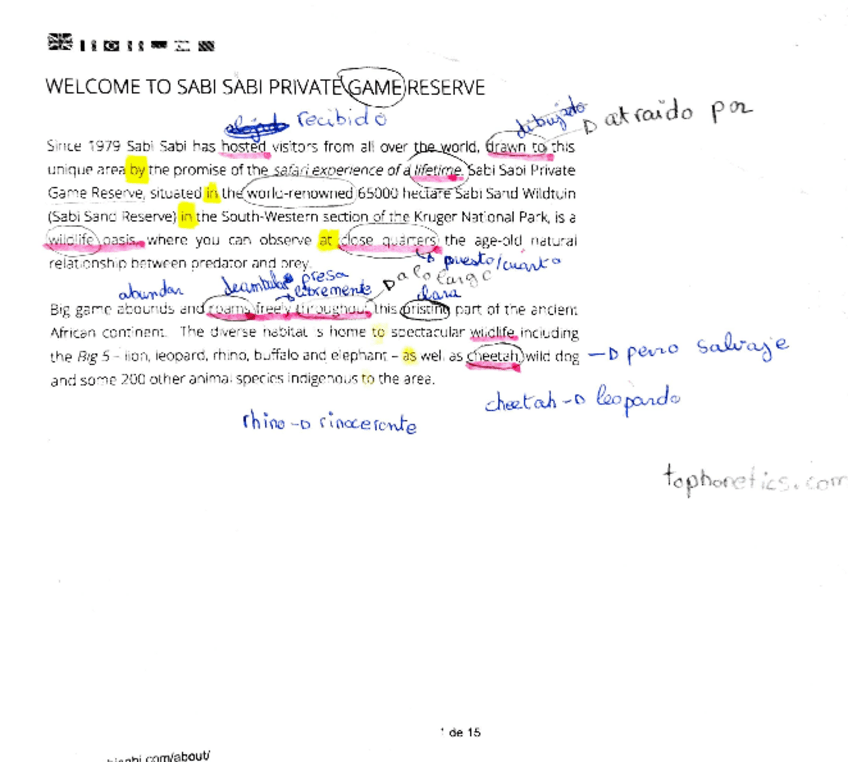 WELCOME TO SABI SABI PRIVATE GAME RESERVE
recibido
dibujado
atraído por
Since 1979 Sabi Sabi has hosted visitors from all over the world, drawn to this
unique area by the promise of the safari experience of a lifetime. Sabi Sabi Private
Game Reserve, situated in the world-renowned 65000 hectare Sabi Sand Wildtuin
(Sabi Sand Reserve) in the South-Western section of the Kruger National Park, is a
wildlife oasis, where you can observe at close quarters the age-old natural
puesto/cuarto
relationship between predator and prey.
presa
a lo largo
abundar deambular libremente clara
Big game abounds and roams freely throughout this pristing part of the ancient
African continent. The diverse habitat is home to spectacular wildlife including
the Big 5 – lion, leopard, rhino, buffalo and elephant – as well as cheetah, wild dog
perro salvaje
and some 200 other animal species indigenous to the area.
cheetah → leopardo
rhino → rinoceronte
tophonetics.com
1 de 15
.com/about/